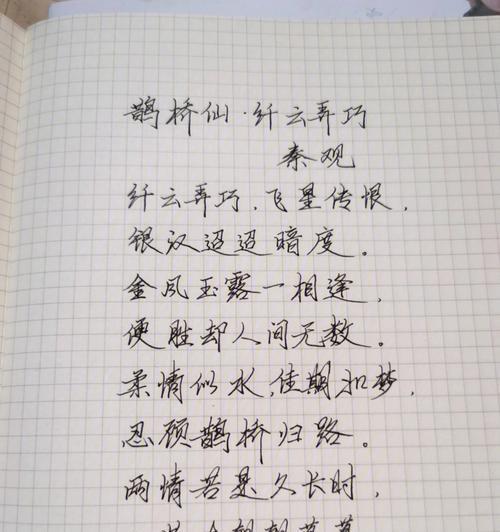 鹊桥仙·纤云弄巧
秦观
纤云弄巧,飞星传恨,
银汉迢迢暗度。
金风玉露一相逢,
便胜却人间无数。
柔情似水,佳期如梦,
忍顾鹊桥归路。
两情若是久长时,